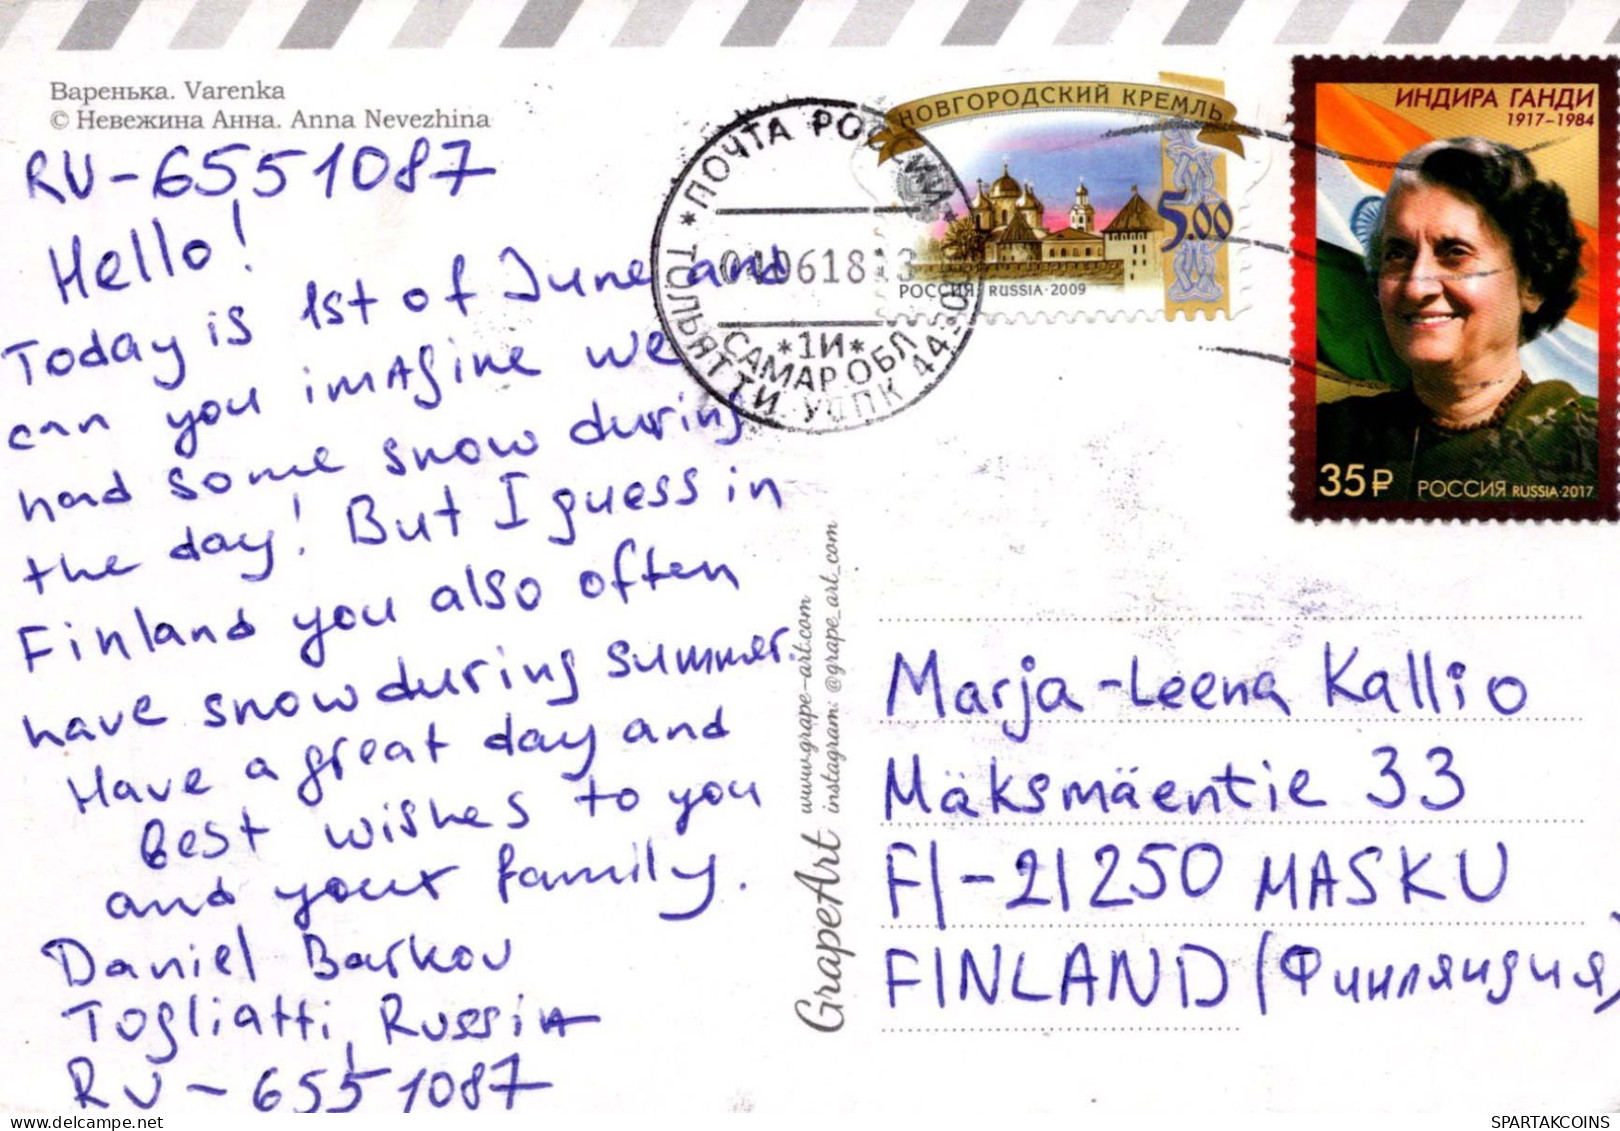 Варенька. Varenka
© Невежина Анна. Anna Nevezhina
RU-6551087
Hello!
Today is 1st of June and
can you imagine we
had some snow during
the day! But I guess in
Finland you also often
have snow during summer.
Have a great day and
best wishes to you
and your family.
Daniel Barkov
Togliatti, Russia
RU-6551087
ПОЧТА РОССИИ
ТОЛЬЯТТИ УОПК 44-50
0618
*1И*
САМАР.ОБЛ
НОВГОРОДСКИЙ КРЕМЛЬ
5.00
РОССИЯ RUSSIA·2009
ИНДИРА ГАНДИ
1917–1984
35₽ РОССИЯ RUSSIA·2017
GrapeArt
www.grape-art.com
instagram: @grape_art_com
Marja-Leena Kallio
Mäksmäentie 33
FI-21250 MASKU
FINLAND (Финляндия)
delcampe.net
SPARTAKCOINS